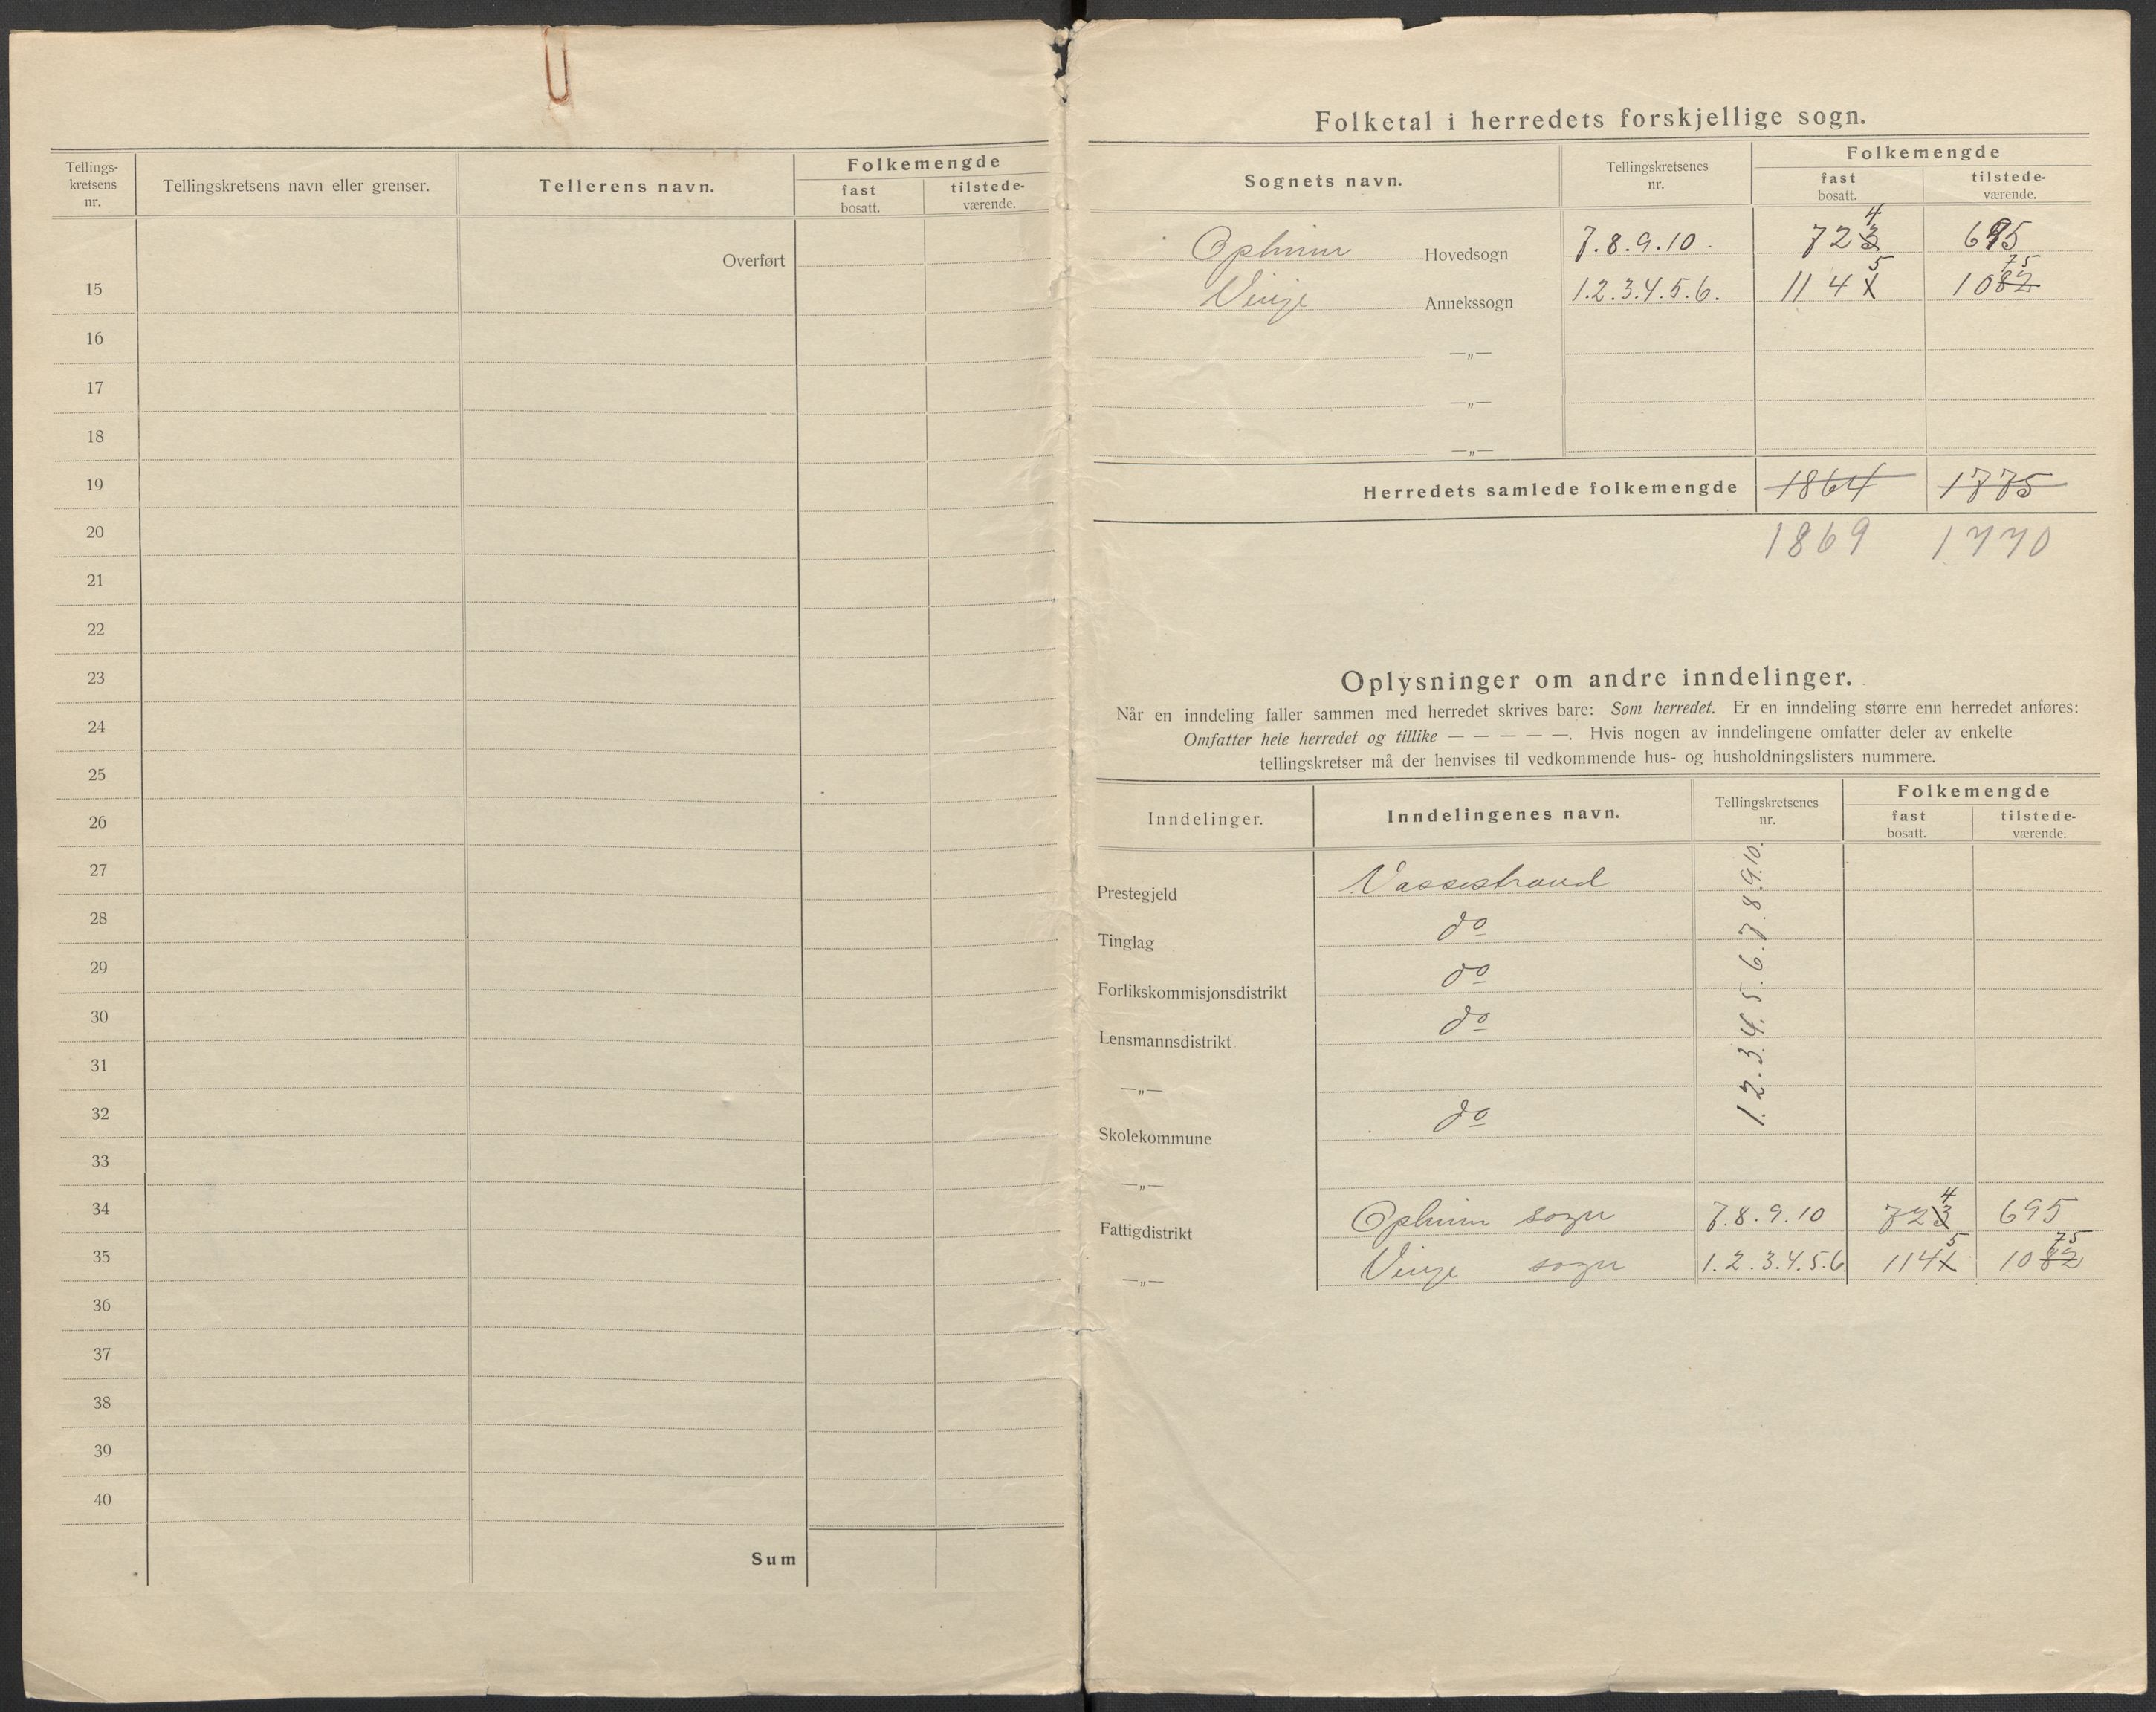 Tellings-kretsens nr. Tellingskretsens navn eller grenser. Tellerens navn. Folkemengde
fast bosatt. tilstede-værende.
Overført
15
16
17
18
19
20
21
22
23
24
25
26
27
28
29
30
31
32
33
34
35
36
37
38
39
40
Sum
Folketal i herredets forskjellige sogn.
Sognets navn. Tellingskretsenes nr. Folkemengde
fast bosatt. tilstede-værende.
Ophiim Hovedsogn 7.8.9.10. 723 4 695
Vinje Annekssogn 1.2.3.4.5.6. 1141 5 1082 75
—„—
—„—
—„—
Herredets samlede folkemengde 1864 1775
1869 1770
Oplysninger om andre inndelinger.
Når en inndeling faller sammen med herredet skrives bare: Som herredet. Er en inndeling større enn herredet anføres:
Omfatter hele herredet og tillike — — — — —. Hvis nogen av inndelingene omfatter deler av enkelte
tellingskretser må der henvises til vedkommende hus- og husholdningslisters nummere.
Inndelinger. Inndelingenes navn. Tellingskretsenes nr. Folkemengde
fast bosatt. tilstede-værende.
Prestegjeld Vossestrand 1.2.3.4.5.6.7.8.9.10.
Tinglag do
Forlikskommisjonsdistrikt do
Lensmannsdistrikt do
—„—
Skolekommune do
—„—
Fattigdistrikt Ophiim sogn 7.8.9.10 723 4 695
—„— Vinje sogn 1.2.3.4.5.6. 1141 5 1082 75